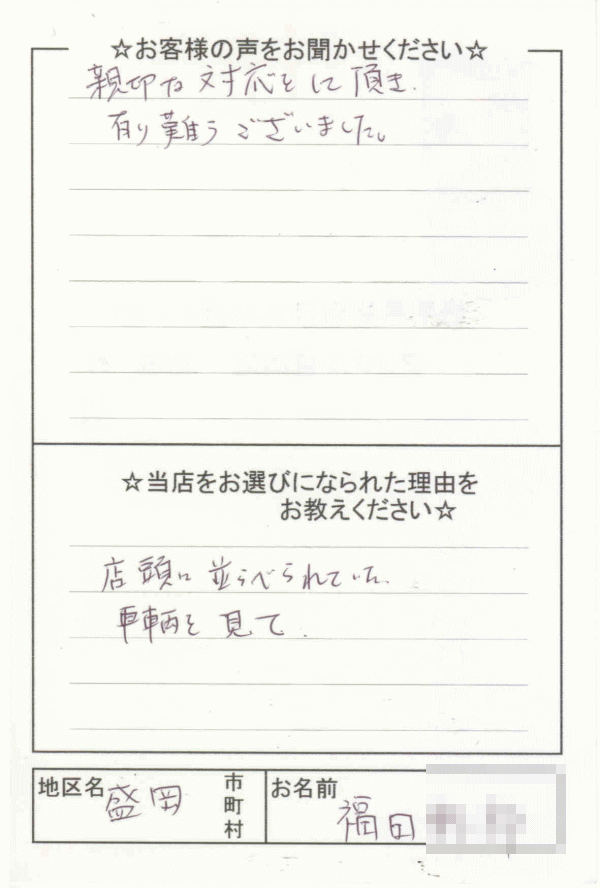 ☆お客様の声をお聞かせください☆
親切な対応をして頂き.
有り難うございました。
☆当店をお選びになられた理由を
お教えください☆
店頭に並らべられていた.
車輌を見て.
地区名 盛岡 市町村 お名前 福田